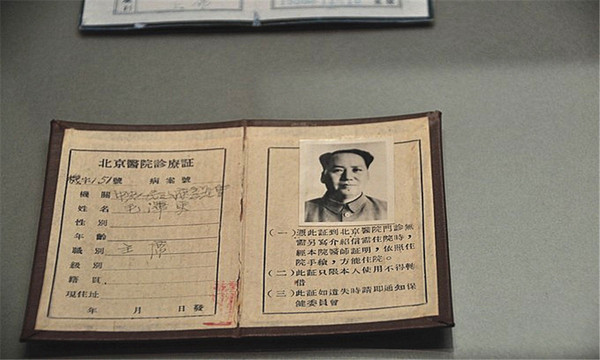 北京醫院診療証
字151號 病案號
機關
姓名 毛澤東
性別
年齡
職別 主席
級別
籍貫
現住址
年 月 日發
(一)憑此証到北京醫院門診無
需另寫介紹信需住院時,
經本院醫師証明,依照住
院手續,方能住院。
(二)此証只限本人使用不得轉
借
(三)此証如遺失時請即通知保
健委員會